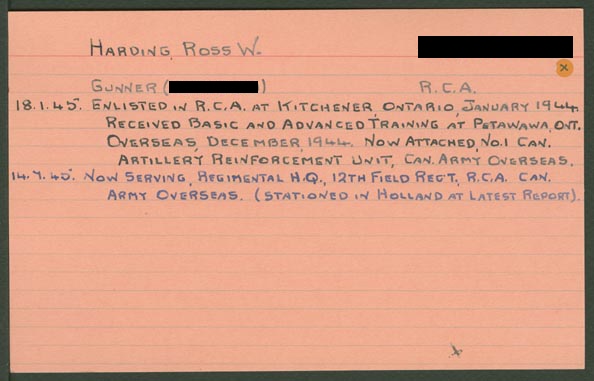 HARDING, ROSS W.
GUNNER ( ) R.C.A.
18.1.45. ENLISTED IN R.C.A. AT KITCHENER ONTARIO, JANUARY 1944.
RECEIVED BASIC AND ADVANCED TRAINING AT PETAWAWA, ONT.
OVERSEAS, DECEMBER, 1944. NOW ATTACHED, NO.1 CAN.
ARTILLERY REINFORCEMENT UNIT, CAN. ARMY OVERSEAS.
14.7.45. NOW SERVING, REGIMENTAL H.Q., 12TH FIELD REGT, R.C.A. CAN.
ARMY OVERSEAS. (STATIONED IN HOLLAND AT LATEST REPORT).